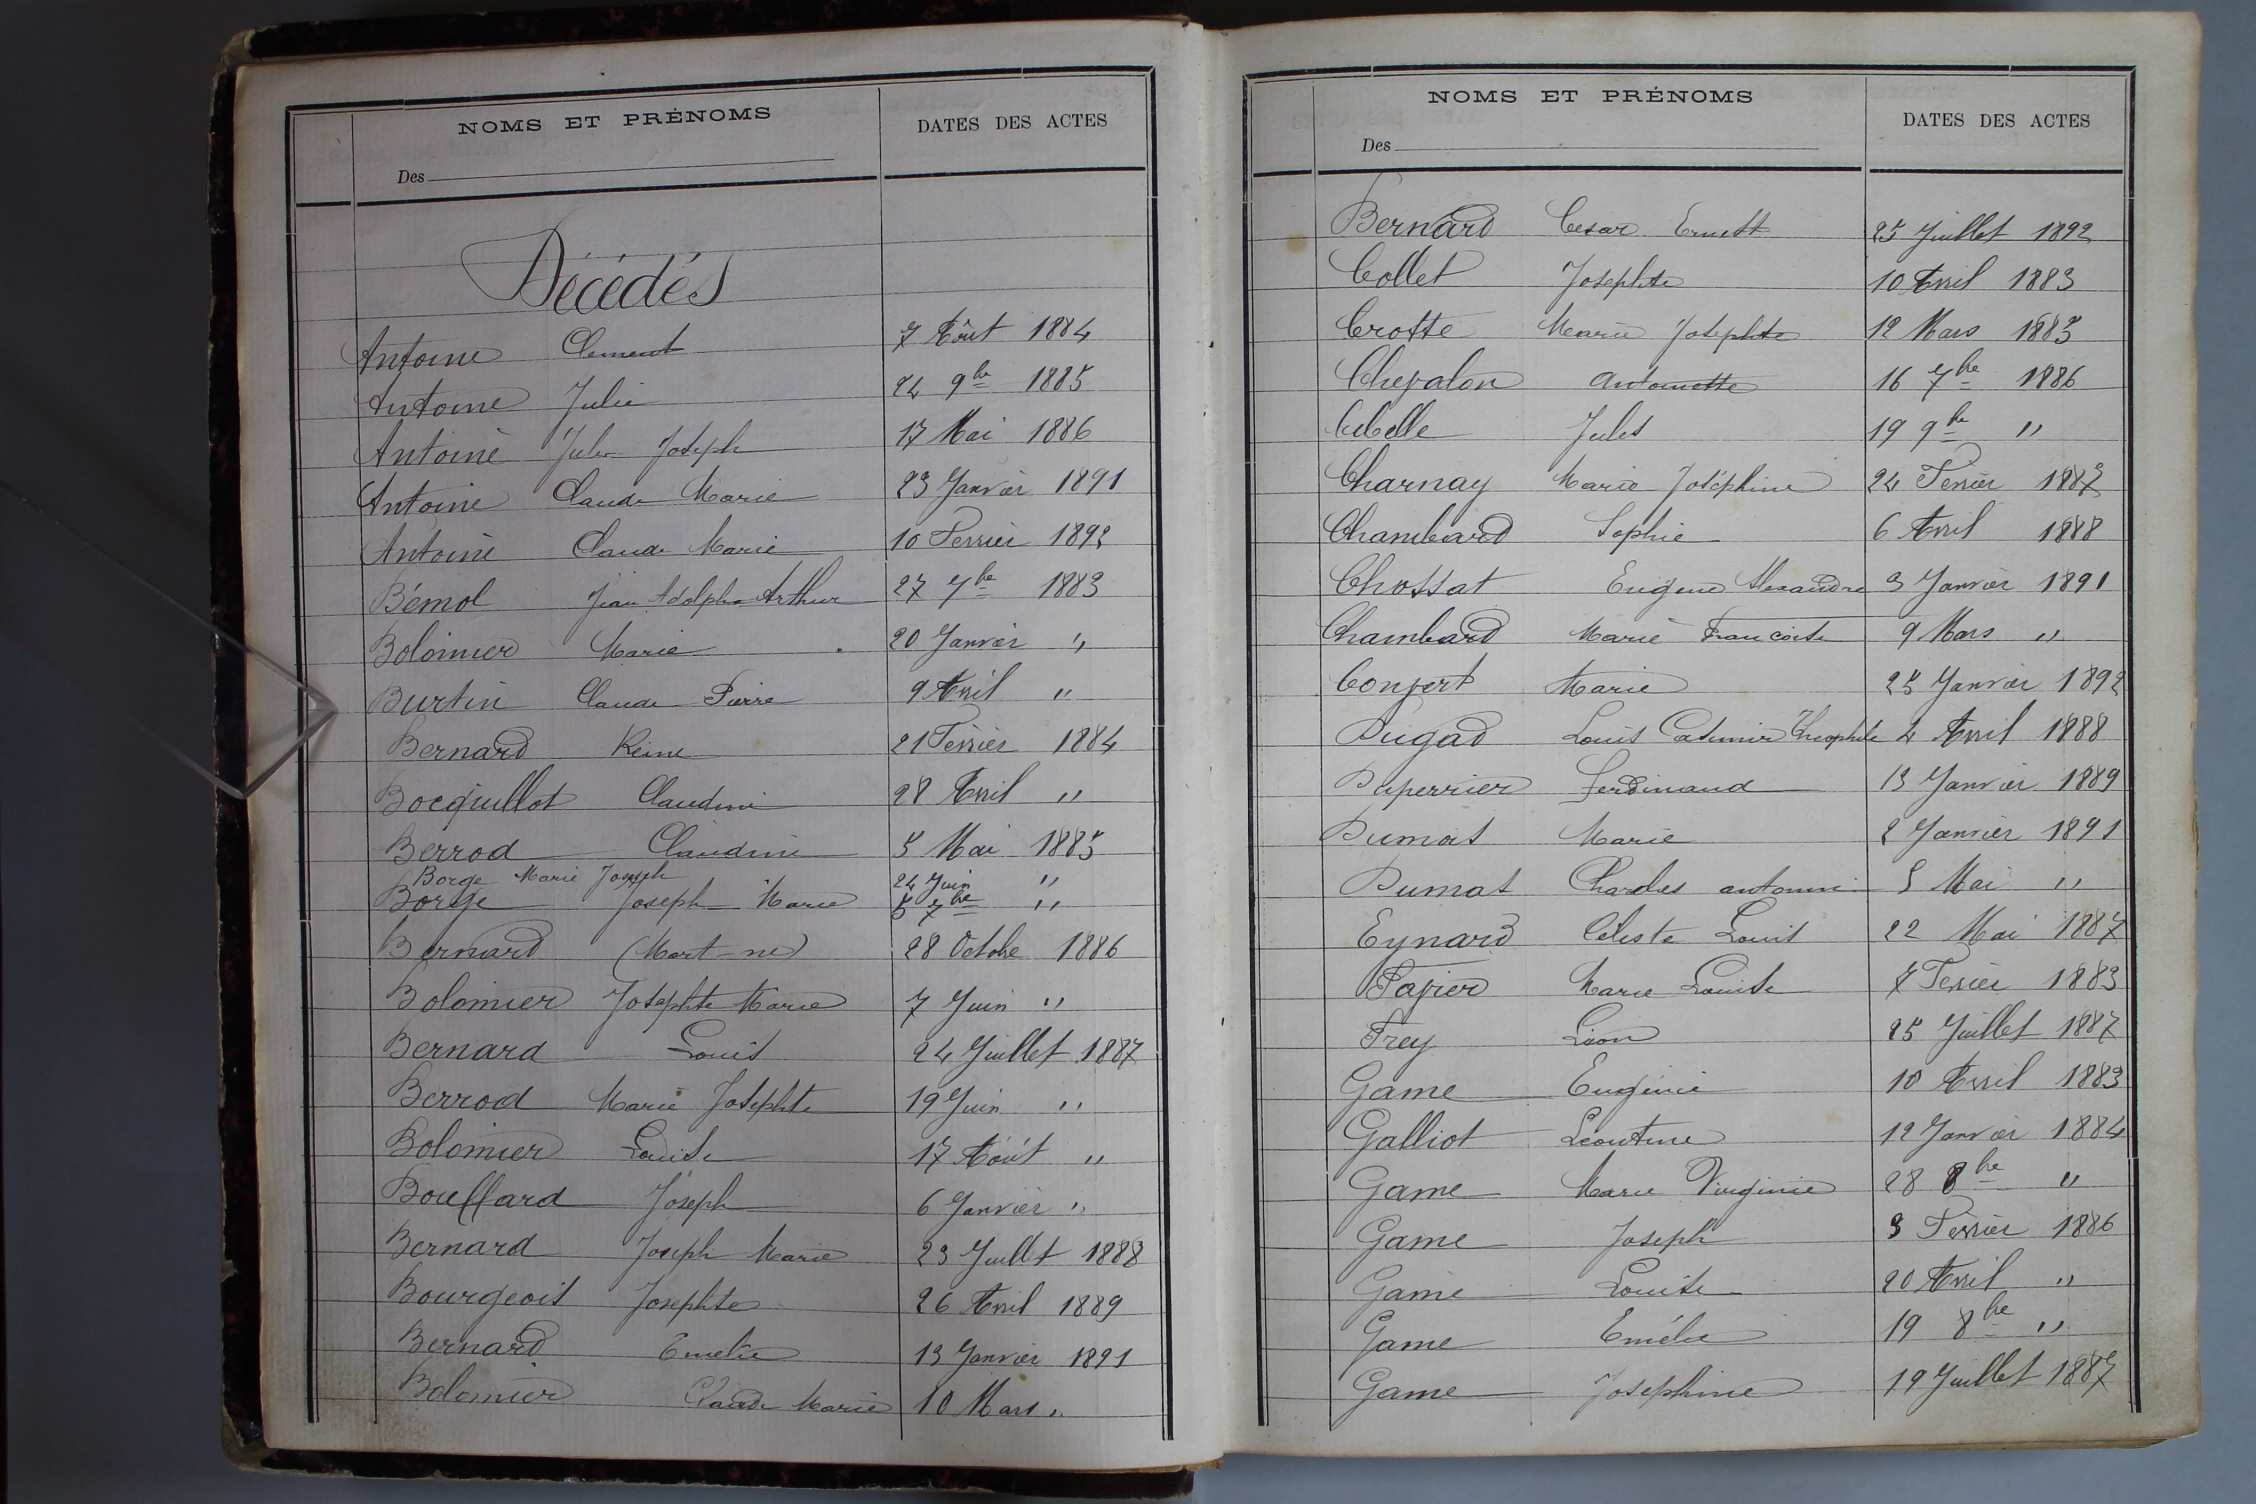 NOMS ET PRÉNOMS DATES DES ACTES
Des
Décédés
Antoine Clement 7 Aôut 1884
Antoine Julie 24 9bre 1885
Antoine Jules Joseph 17 Mai 1886
Antoine Claude Marie 23 Janvier 1891
Antoine Claude Marie 10 Fevrier 1892
Bémol Jean Adolphe Arthur 27 7bre 1883
Bolomier Marie 20 Janvier "
Burtin Claude Pierre 9 Avril "
Bernard Reine 21 Février 1884
Bocquillot Claudine 28 Avril "
Berrod Claudine 5 Mai 1885
Borge Marie Joseph 24 Juin "
Borge Joseph Marie 5 7bre "
Bernard (Mort-né) 28 Octobre 1886
Bolomier Josephte Marie 7 Juin "
Bernard Louis 24 Juillet 1887
Berrod Marie Josephte 19 Juin "
Bolomier Louise 17 Août "
Bouffard Joseph 6 Janvier "
Bernard Joseph Marie 23 Juillet 1888
Bourgeois Josephte 26 Avril 1889
Bernard Emelie 13 Janvier 1891
Bolomier Claude Marie 10 Mars "
NOMS ET PRÉNOMS DATES DES ACTES
Des
Bernard Cesar Ernest 25 Juillet 1892
Collet Josephte 10 Avril 1883
Crotte Marie Josephte 12 Mars 1885
Chevalon Antoinette 16 7bre 1886
Cibelle Jules 19 9bre "
Charnay Marie Joséphine 24 Février 1887
Chambard Sophie 6 Avril 1888
Chossat Eugene Alexandre 3 Janvier 1891
Chambard Marie Francoise 9 Mars "
Convert Marie 25 Janvier 1892
Dugad Louis Casimir Théophile 4 Avril 1888
Duperrier Ferdinand 13 Janvier 1889
Dumas Marie 2 Janvier 1891
Dumas Charles antonin 5 Mai "
Eynard Céleste Louis 22 Mai 1887
Favier Marie Louise 7 Fevrier 1883
Frey Léon 25 Juillet 1887
Game Eugénie 10 Avril 1883
Galliot Léontine 12 Janvier 1884
Game Marie Virginie 28 8bre "
Game Joseph 3 Février 1886
Game Louise 20 Avril "
Game Emélie 19 8bre "
Game Josephine 19 Juillet 1887